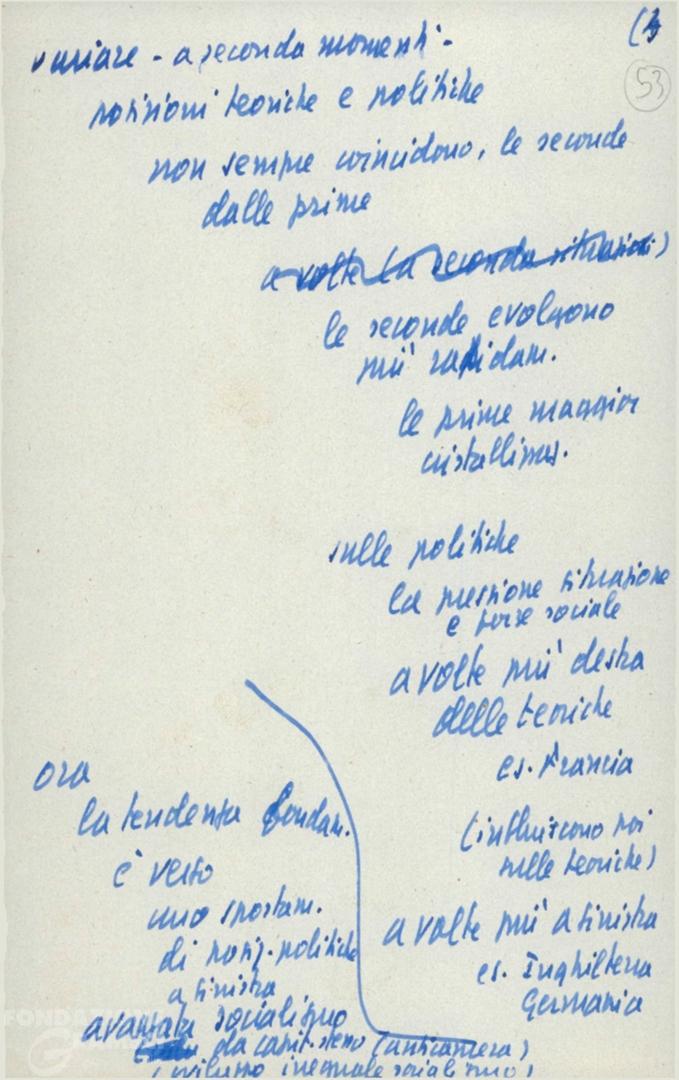 (3
53
variare - a seconda momenti -
posizioni teoriche e politiche
non sempre coincidono, le seconde
dalle prime
a volte (a seconda situazioni)
le seconde evolgono
più rapidam.
le prime maggior
cristallizzaz.
sulle politiche
la pressione situazione
e forze sociale
a volte più destra
delle teoriche
es. Francia
(influiscono poi
sulle teoriche)
a volte più a sinistra
es. Inghilterra
Germania
ora
la tendenza fondam.
è verso
uno spostam.
di posiz. politiche
a sinistra
avanzata socialismo
da capit. stesso (anticamera)
(sviluppo ineguale socialismo)
FONDAZIONE